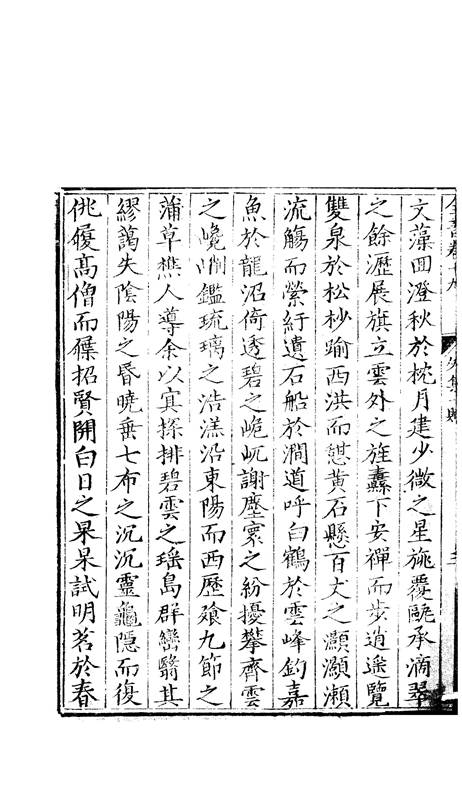 文藻回澄秋於枕月建少微之星旐覆甌承滴翠
之餘瀝展旗立雲外之旌纛下安禪而步逍遙覽
雙泉於松杪踰西洪而憇黃石懸百丈之灝灝瀬
流觴而縈紆遺石船於澗道呼白鶴於雲峰釣嘉
魚於龍沼倚透碧之峗屼謝塵寰之紛擾攀齊雲
之巉峭鑑琉璃之浩漾沿東陽而西歷飱九節之
蒲草樵人導余以冥探排碧雲之瑶島群巒翳其
繆藹失陰陽之昏曉垂七布之沉沉靈龜隱而復
佻履高僧而屧招賢開白日之杲杲試明茗於春